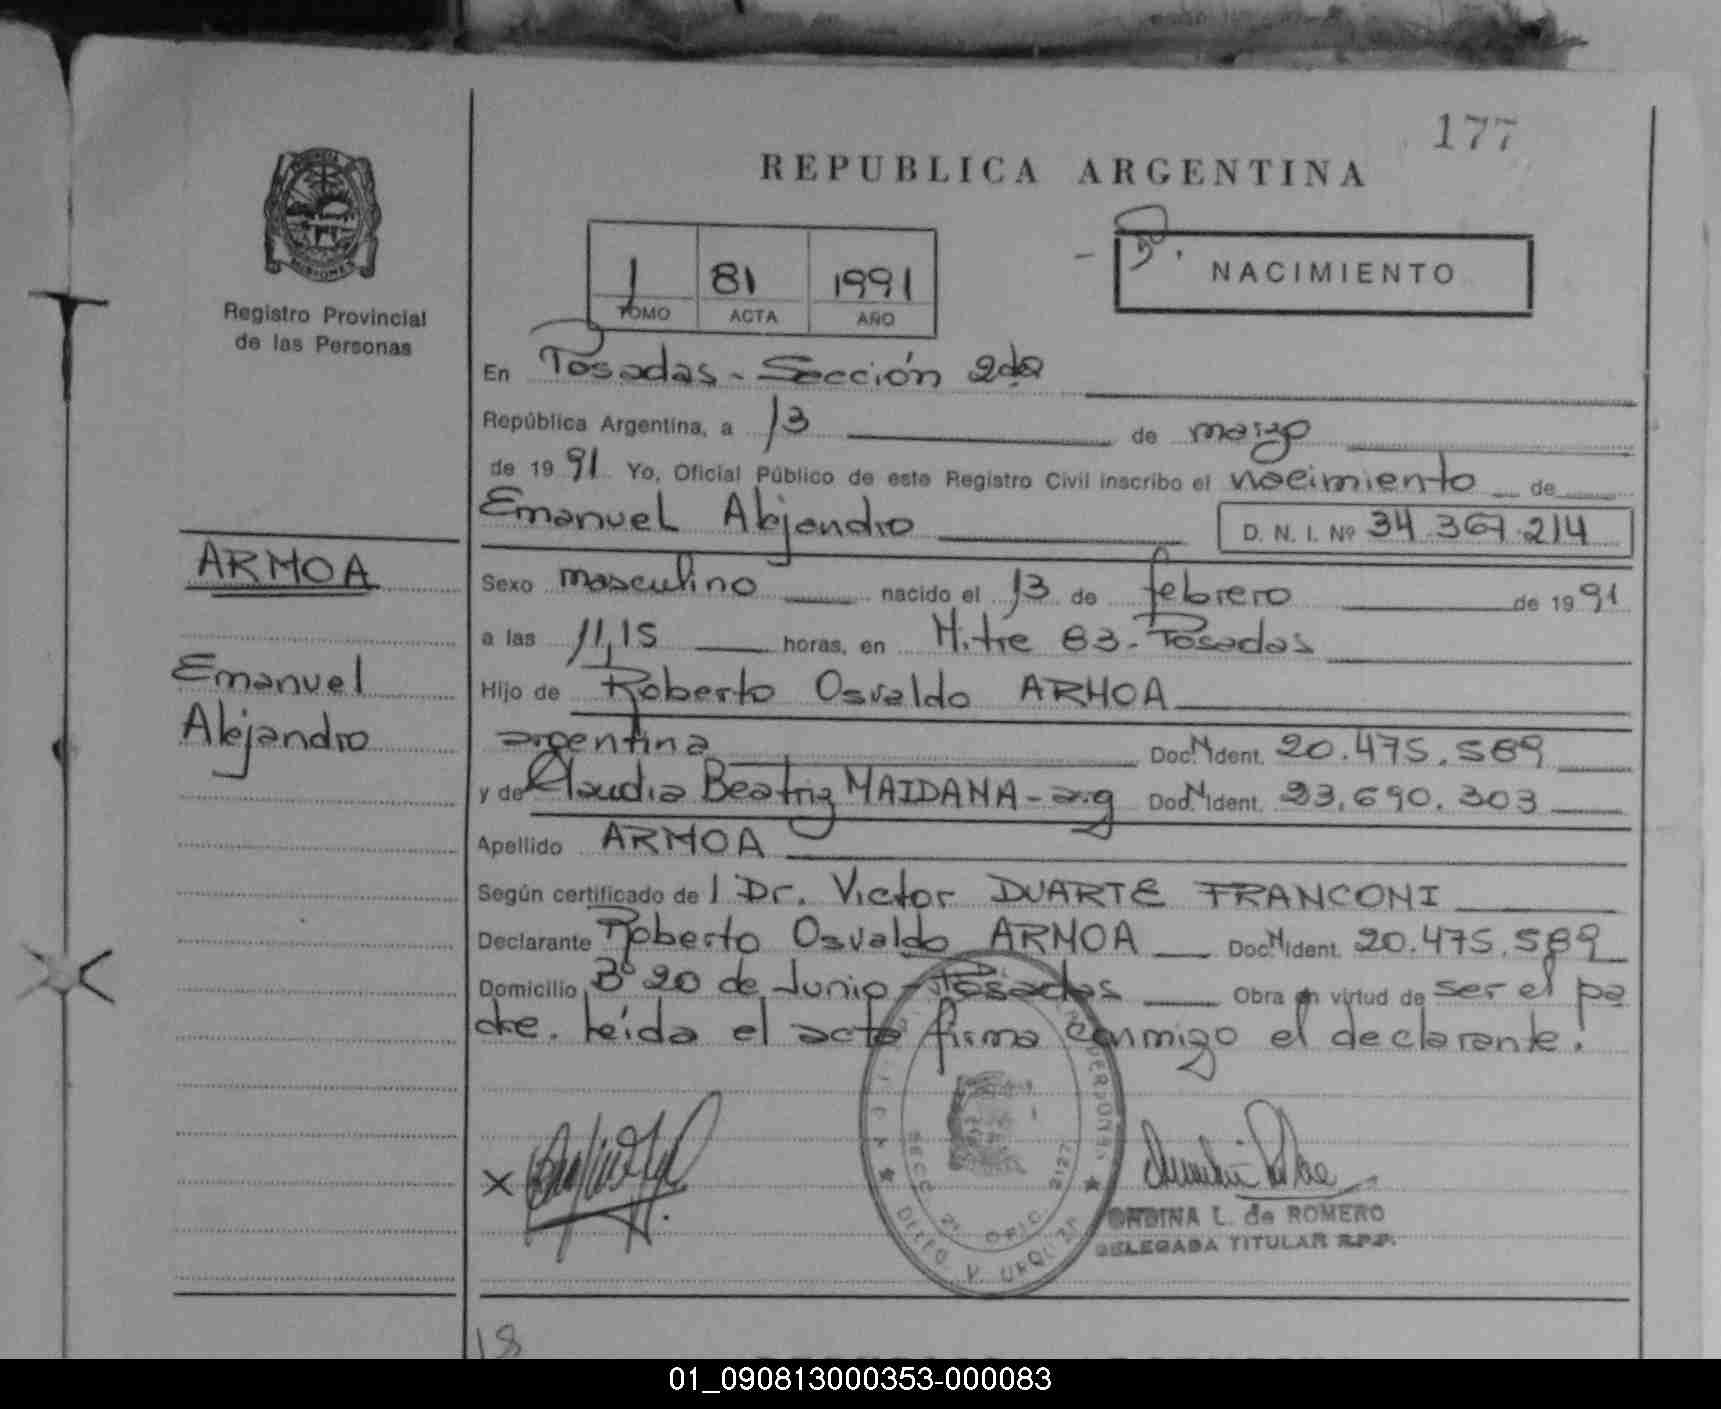 177
REPUBLICA ARGENTINA
MISIONES
Registro Provincial
de las Personas
1 81 1991
TOMO ACTA AÑO
NACIMIENTO
En Posadas - Sección 2da
República Argentina, a 13 de marzo
de 19 91 Yo, Oficial Público de este Registro Civil inscribo el nacimiento de
Emanuel Alejandro D. N. I. Nº 34.367.214
ARMOA
Sexo masculino nacido el 13 de febrero de 19 91
a las 11,15 horas, en Mitre 83 - Posadas
Emanuel
Alejandro
Hijo de Roberto Osvaldo ARMOA
argentina Doc. N Ident. 20.475.589
y de Claudia Beatriz MAIDANA - arg Doc. N Ident. 23.690.303
Apellido ARMOA
Según certificado de l Dr. Victor DUARTE FRANCONI
Declarante Roberto Osvaldo ARMOA Doc. N Ident. 20.475.589
Domicilio Bº 20 de Junio - Posadas Obra en virtud de ser el pa
dre. Leída el acta firma conmigo el declarante.
X
SECC. 2ª OFIC. 2127
DELEG. V. URQUIZA
ONDINA L. de ROMERO
DELEGADA TITULAR R.P.P.
18
01_090813000353-000083